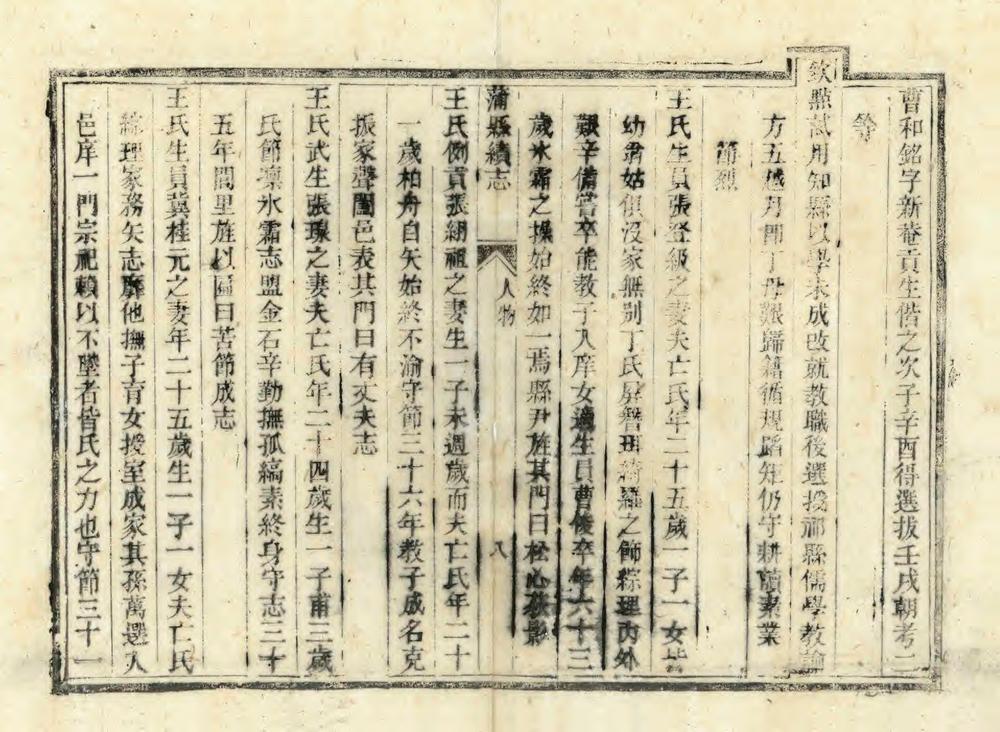 曹和銘字新菴貢生偕之次子辛酉得選拔壬戌朝考二
等
欽點試用知縣以學未成改就教職後選授祁縣儒學教諭
方五越月即丁母艱歸籍循規蹈矩仍守耕讀素業
節烈
王氏生員張登級之妻夫亡氏年二十五歲一子一女皆
幼翁姑俱沒家無別丁氏屏簪珥綺羅之飾綜理內外
艱辛備嘗卒能教子入庠女適生員曹俊卒年六十三
歲氷霜之操始終如一焉縣尹旌其門曰松心影
蒲縣續志
人物
八
王氏側貢張繩祖之妻生一子未週歲而夫亡氏年二十
一歲柏舟自矢始終不渝守節三十六年教子成名克
振家聲闔邑表其門曰有丈夫志
王氏武生張之妻夫亡氏年二十四歲生一子甫三歲
氏節凛氷霜志盟金石辛勤撫孤縞素終身守志三十
五年閭里旌以匾曰苦節成志
王氏生員冀桂元之妻年二十五歲生一子一女夫亡氏
綜理家務矢志靡他撫子育女授室成家其孫萬選入
邑庠一門宗祀賴以不墜者皆氏之力也守節三十一